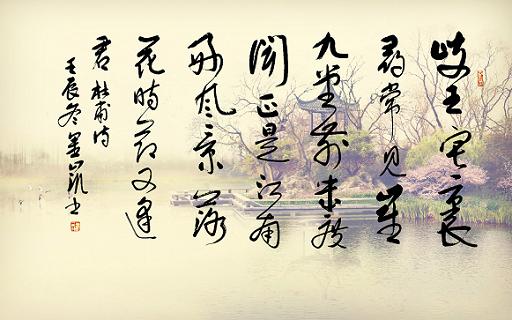 岐王宅裏
尋常見崔
九堂前幾度
聞正是江南
好风景落
花時節又逢
君 杜甫诗
壬辰冬墨书